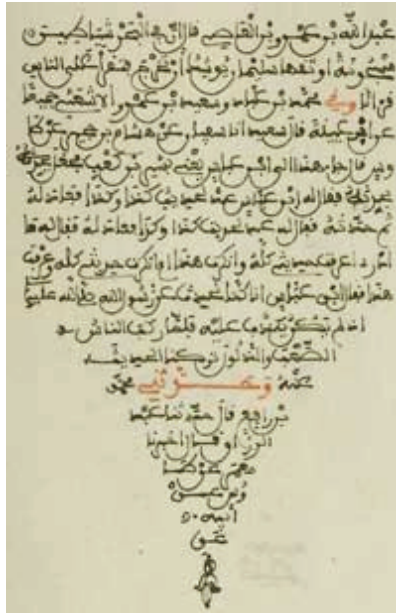 عبد الله بن عمرو بن العاصي قال إن في البحر شياطين
مسجونة أوثقها سليمان يوشك أن تخرج فتقرأ على الناس
قرآنا وني محمد بن عباد وسعيد بن عمرو الأشعثي جميعا
عن ابن عيينة قال سعيد أنا سفيان عن هشام بن حجير عن طا
وس قال جاء هذا إلى ابن عباس يعني بشير بن كعب فجعل
يحدثه فقال له ابن عباس عد لحديث كذا وكذا فعاد له
ثم حدثه فقال له عد لحديث كذا وكذا فعاد له فقال له ما
أدري أعرفت حديثي كله وأنكرت هذا أو أنكرت حديثي كله وعرفت
هذا فقال ابن عباس إنا كنا نحدث عن رسول الله صلى الله عليه
إذ لم يكن يكذب عليه فلما ركب الناس
الصعب والذلول تركنا الحديث
عنه وحدثني محمد
بن رافع قال حدثنا عبد
الرزاق قال أخبرنا
معمر عن ابن طا
وس عن
أبيه
عن